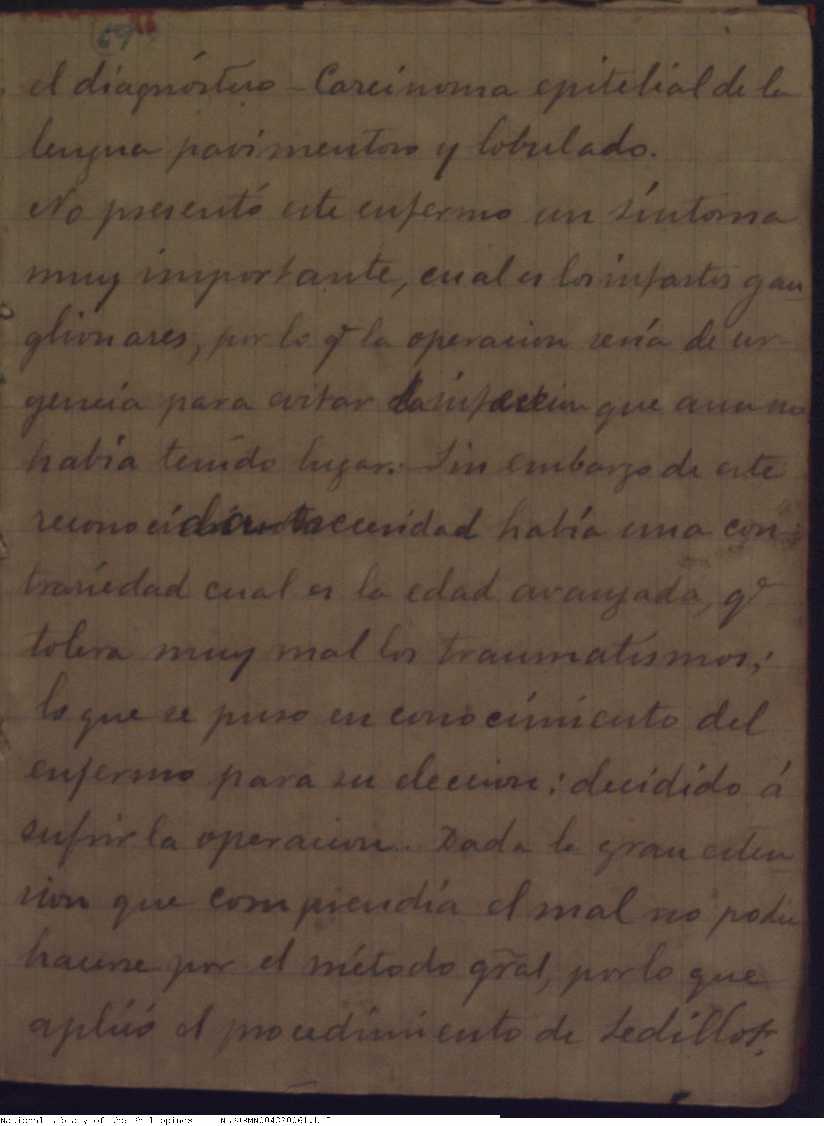 69
el diagnóstico – Carcinoma epitelial de la
lengua pavimentoso y lobulado.
No presentó este enfermo un síntoma
muy importante, cual es los infartos gan
glionares, por lo q.e la operacion sería de ur-
gencia para evitar la infeccion que aun no
había tenido lugar. Sin embargo de esta
reconocida necesidad había una con-
trariedad cual es la edad avanzada, q.e
tolera muy mal los traumatismos;
lo que se puso en conocimiento del
enfermo para su eleccion: decidido á
sufrir la operacion. Dada la gran esten
sion que comprendía el mal no podía
hacerse por el método gral, por lo que
aplicó el procedimiento de Sedillot.
National Library of the Philippines